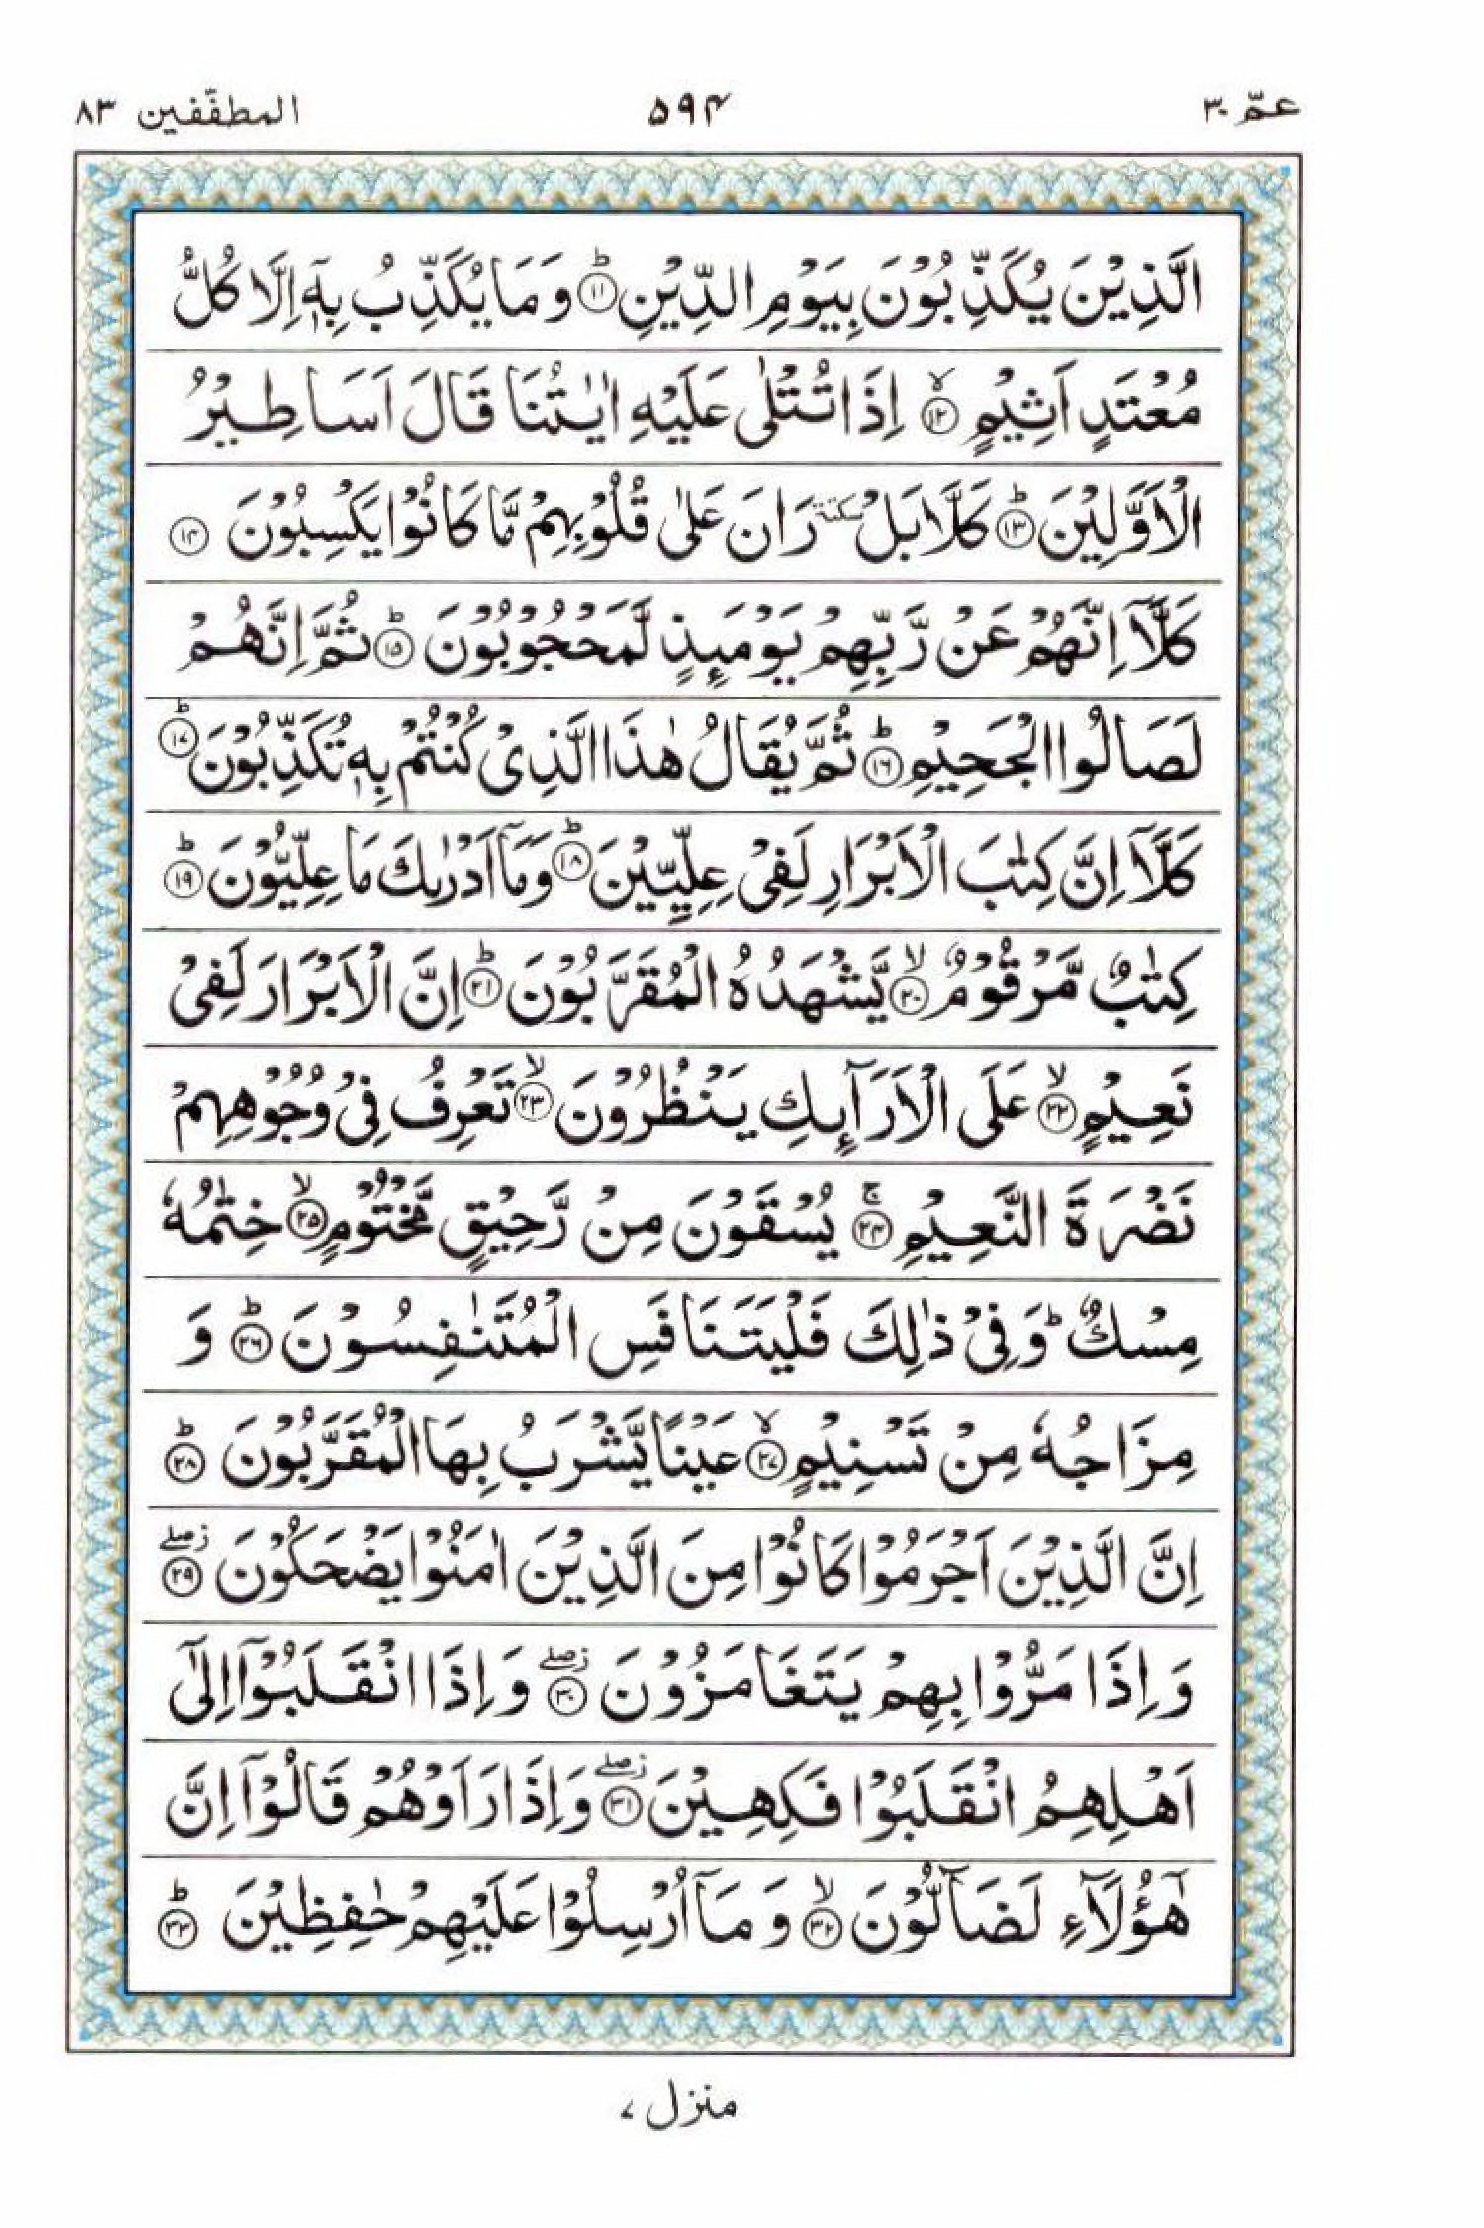 عمّ ۳۰ ۵۹۴ المطفّفين ۸۳
الَّذِيْنَ يُكَذِّبُوْنَ بِيَوْمِ الدِّيْنِ ؕ۝۱۱ وَمَا يُكَذِّبُ بِهٖۤ اِلَّا كُلُّ
مُعْتَدٍ اَثِيْمٍ ۙ۝۱۲ اِذَا تُتْلٰى عَلَيْهِ اٰيٰتُنَا قَالَ اَسَاطِيْرُ
الْاَوَّلِيْنَ ؕ۝۱۳ كَلَّا بَلْ سكتة رَانَ عَلٰى قُلُوْبِهِمْ مَّا كَانُوْا يَكْسِبُوْنَ ۝۱۴
كَلَّاۤ اِنَّهُمْ عَنْ رَّبِّهِمْ يَوْمَىِٕذٍ لَّمَحْجُوْبُوْنَ ؕ۝۱۵ ثُمَّ اِنَّهُمْ
لَصَالُوا الْجَحِيْمِ ؕ۝۱۶ ثُمَّ يُقَالُ هٰذَا الَّذِىْ كُنْتُمْ بِهٖ تُكَذِّبُوْنَ ؕ۝۱۷
كَلَّاۤ اِنَّ كِتٰبَ الْاَبْرَارِ لَفِىْ عِلِّيِّيْنَ ؕ۝۱۸ وَمَاۤ اَدْرٰىكَ مَا عِلِّيُّوْنَ ؕ۝۱۹
كِتٰبٌ مَّرْقُوْمٌ ۙ۝۲۰ يَّشْهَدُهُ الْمُقَرَّبُوْنَ ؕ۝۲۱ اِنَّ الْاَبْرَارَ لَفِىْ
نَعِيْمٍ ۙ۝۲۲ عَلَى الْاَرَآىِٕكِ يَنْظُرُوْنَ ۙ۝۲۳ تَعْرِفُ فِىْ وُجُوْهِهِمْ
نَضْرَةَ النَّعِيْمِ ۚ۝۲۴ يُسْقَوْنَ مِنْ رَّحِيْقٍ مَّخْتُوْمٍ ۙ۝۲۵ خِتٰمُهٗ
مِسْكٌ ؕ وَفِىْ ذٰلِكَ فَلْيَتَنَافَسِ الْمُتَنٰفِسُوْنَ ؕ۝۲۶ وَ
مِزَاجُهٗ مِنْ تَسْنِيْمٍ ۙ۝۲۷ عَيْنًا يَّشْرَبُ بِهَا الْمُقَرَّبُوْنَ ؕ۝۲۸
اِنَّ الَّذِيْنَ اَجْرَمُوْا كَانُوْا مِنَ الَّذِيْنَ اٰمَنُوْا يَضْحَكُوْنَ زۖ۝۲۹
وَاِذَا مَرُّوْا بِهِمْ يَتَغَامَزُوْنَ زۖ۝۳۰ وَاِذَا انْقَلَبُوْۤا اِلٰٓى
اَهْلِهِمُ انْقَلَبُوْا فَكِهِيْنَ زۖ۝۳۱ وَاِذَا رَاَوْهُمْ قَالُوْۤا اِنَّ
هٰٓؤُلَآءِ لَضَآلُّوْنَ ۙ۝۳۲ وَمَاۤ اُرْسِلُوْا عَلَيْهِمْ حٰفِظِيْنَ ؕ۝۳۳
منزل ۷